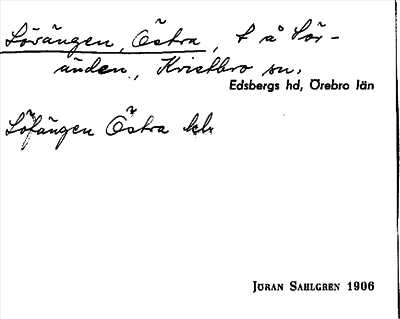 Lövängen, Östra, t å Lör-
änden, Kvistbro sn.
Edsbergs hd, Örebro län
Löfängen Östra kh
JÖRAN SAHLGREN 1906